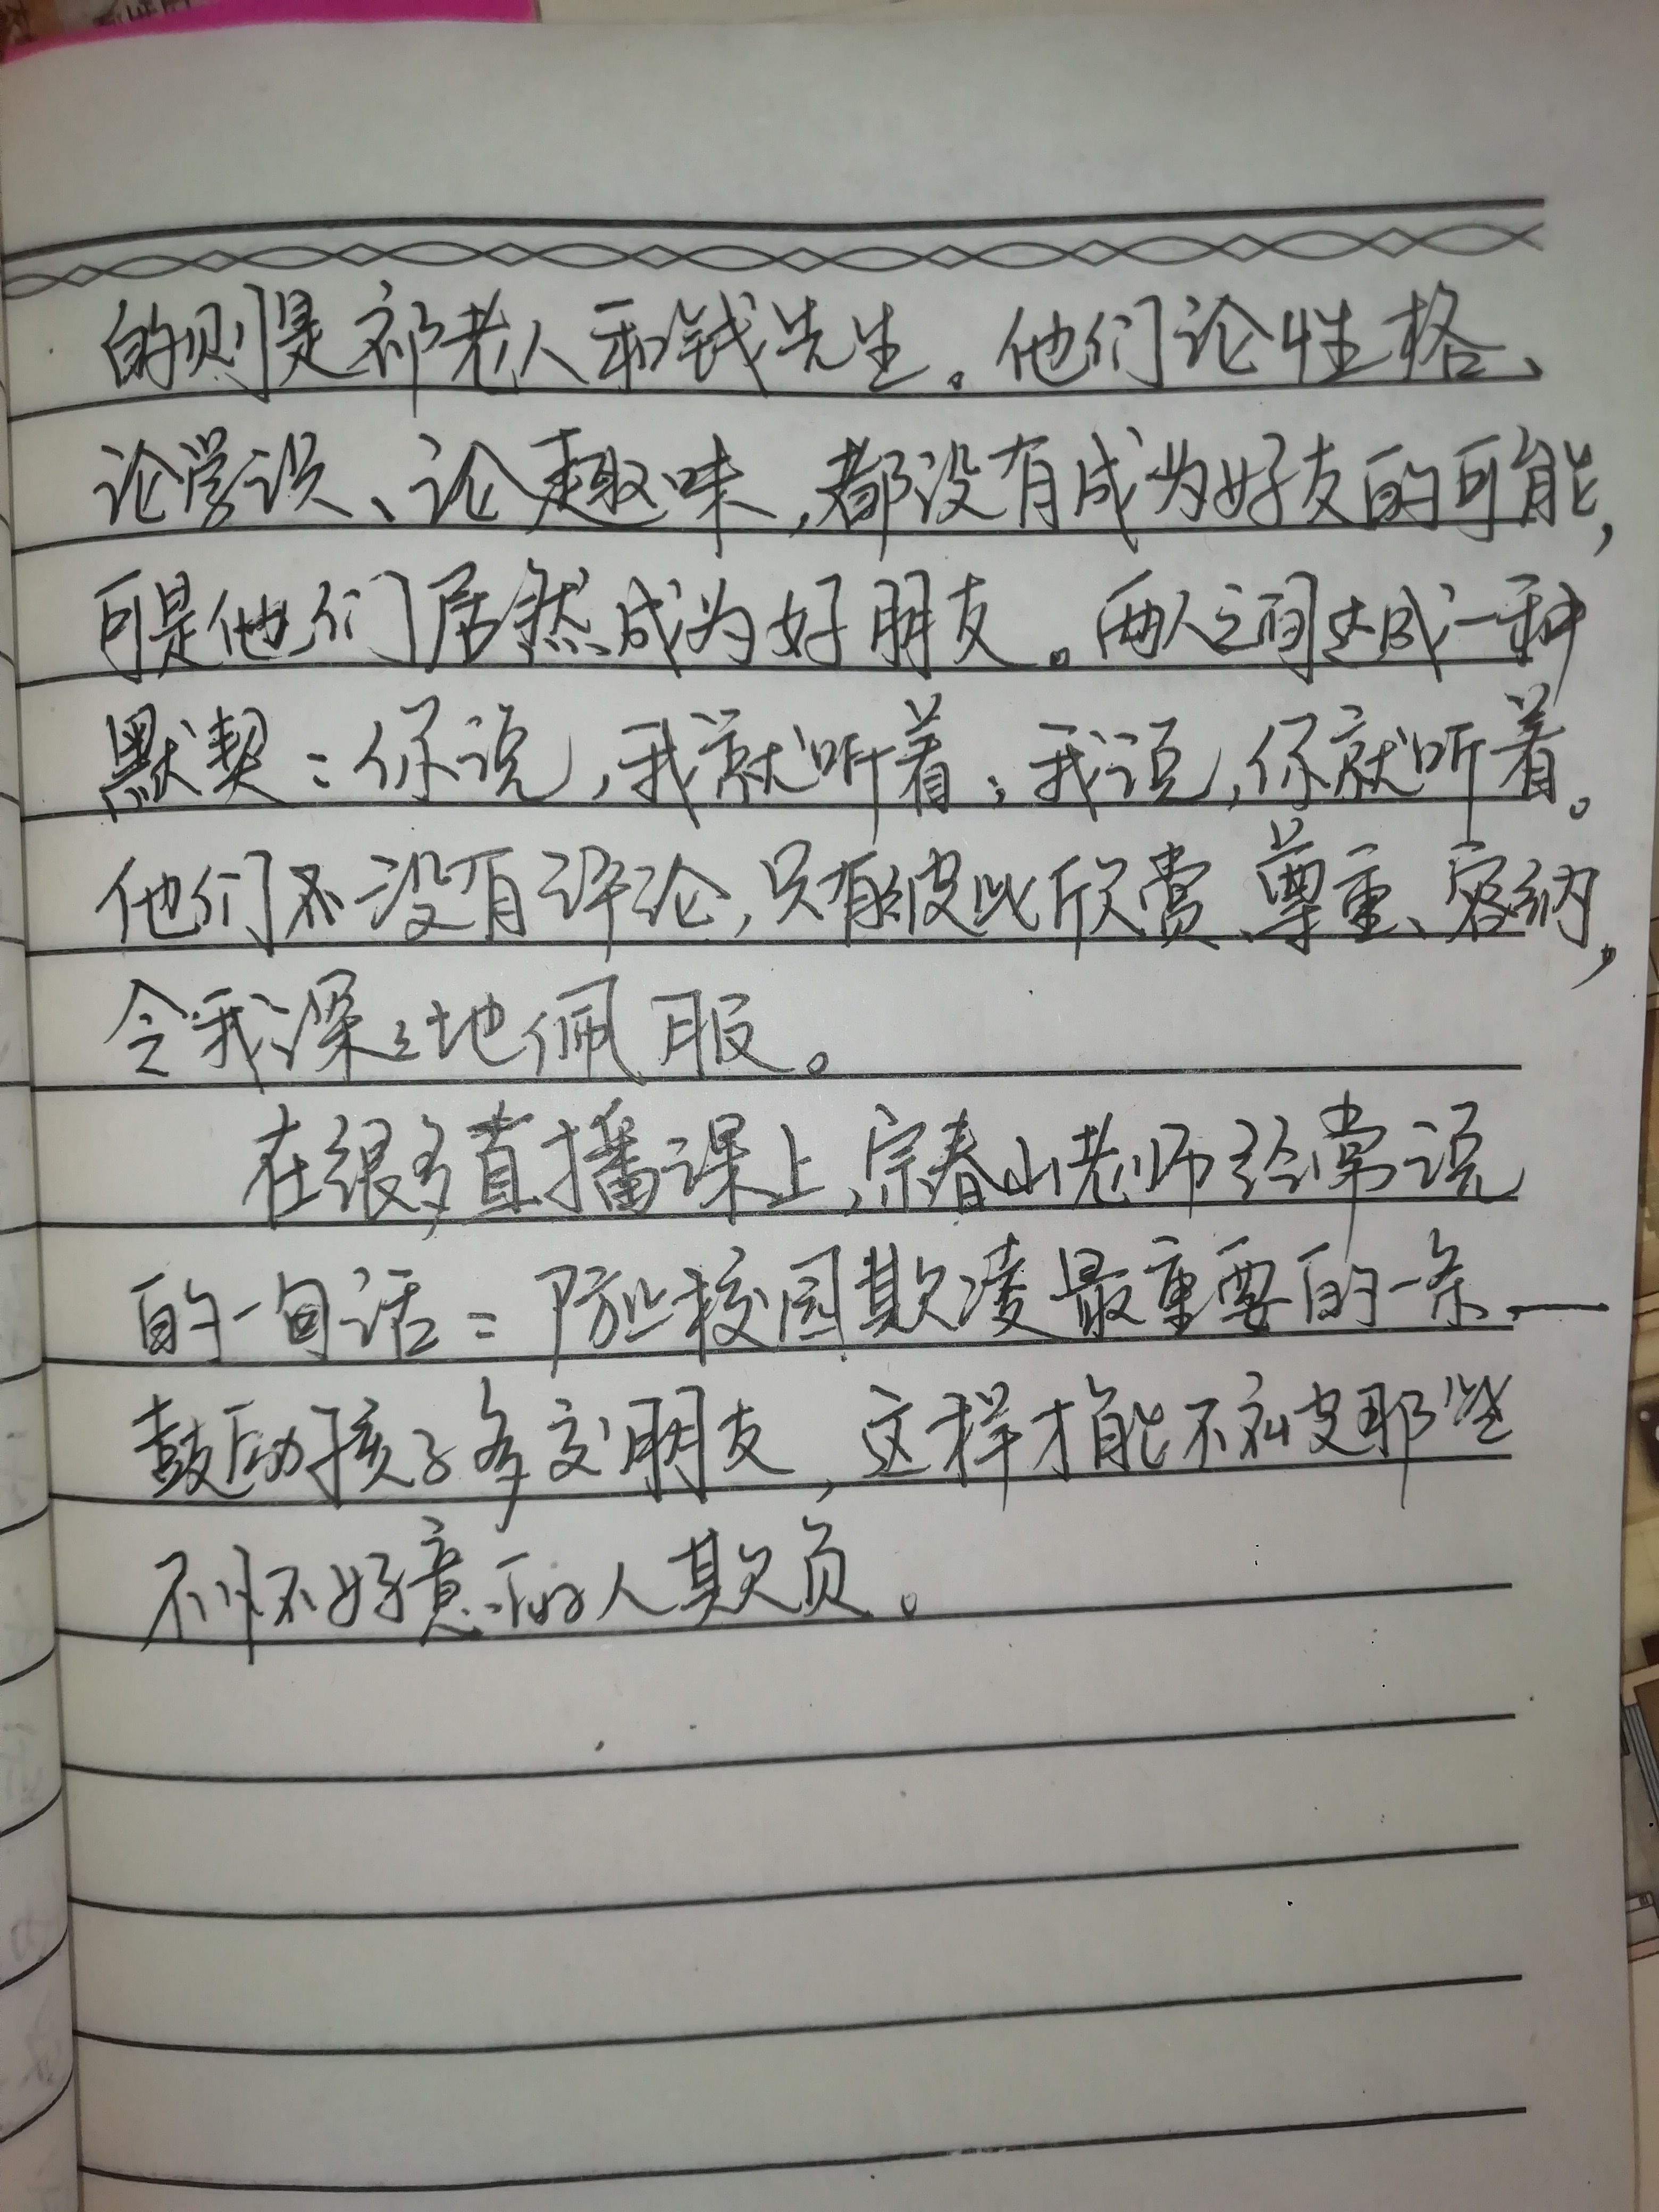 的则是祁老人和钱先生。他们论性格、
论学识、论趣味,都没有成为好友的可能,
可是他们居然成为好朋友。两人之间达成一种
默契:你说,我就听着;我说,你就听着。
他们不没有评论,只有彼此欣赏、尊重、容纳,
令我深深地佩服。
在很多直播课上,宗春山老师经常说
的一句话:防止校园欺凌最重要的一条——
鼓励孩子多交朋友,这样才能不被那些
不怀好意的人欺负。